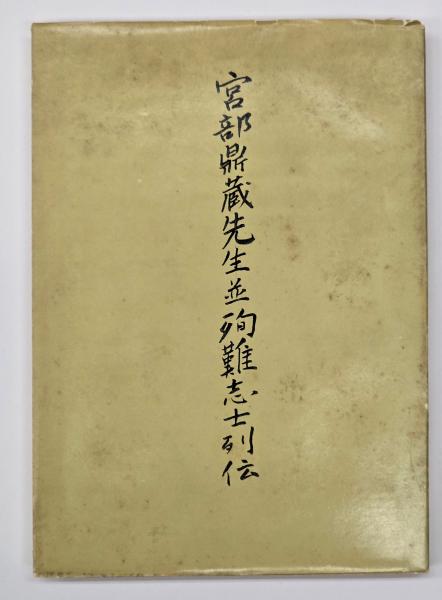 宮部鼎蔵先生並殉難志士列伝